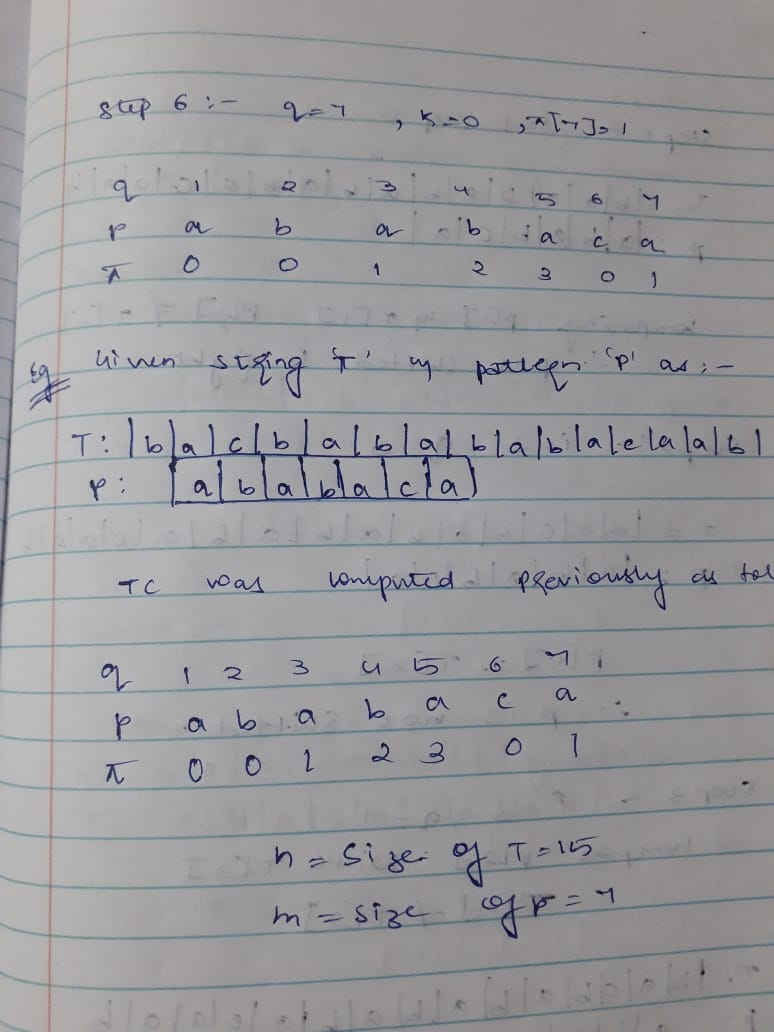 Step 6 :- q=7 , K=0 , π[7]=1
q 1 2 3 4 5 6 7
P a b a b a c a
π 0 0 1 2 3 0 1
Eg Given string 'T' & pattern 'P' as :-
T: |b|a|c|b|a|b|a|b|a|b|a|c|a|a|b|
P: |a|b|a|b|a|c|a|
π was computed previously as fol
q 1 2 3 4 5 6 7
P a b a b a c a :
π 0 0 1 2 3 0 1
n = Size of T = 15
m = size of P = 7